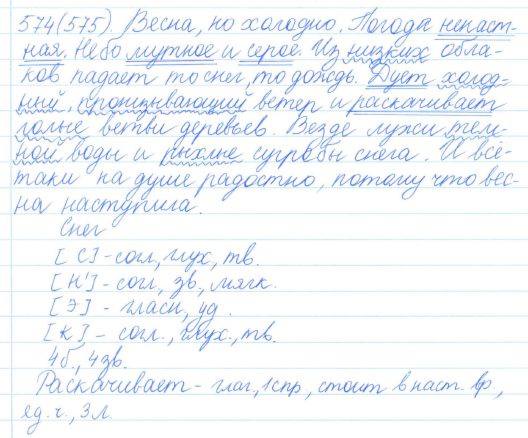 574(575). Весна, но холодно. Погода ненаст-
ная. Небо мутное и серое. Из низких обла-
ков падает то снег, то дождь. Дует холод-
ный, пронизывающий ветер и раскачивает
голые ветви деревьев. Везде лужи тём-
ной воды и рыхлые сугробы снега. И всё-
таки на душе радостно, потому что вес-
на наступила.
Снег
[С] - согл, глух, тв.
[Н'] - согл, зв, мягк.
[Э] - гласн, уд.
[К] - согл., глух., тв.
4б., 4зв.
Раскачивает - глаг, 1спр, стоит в наст. вр,
ед. ч., 3 л.